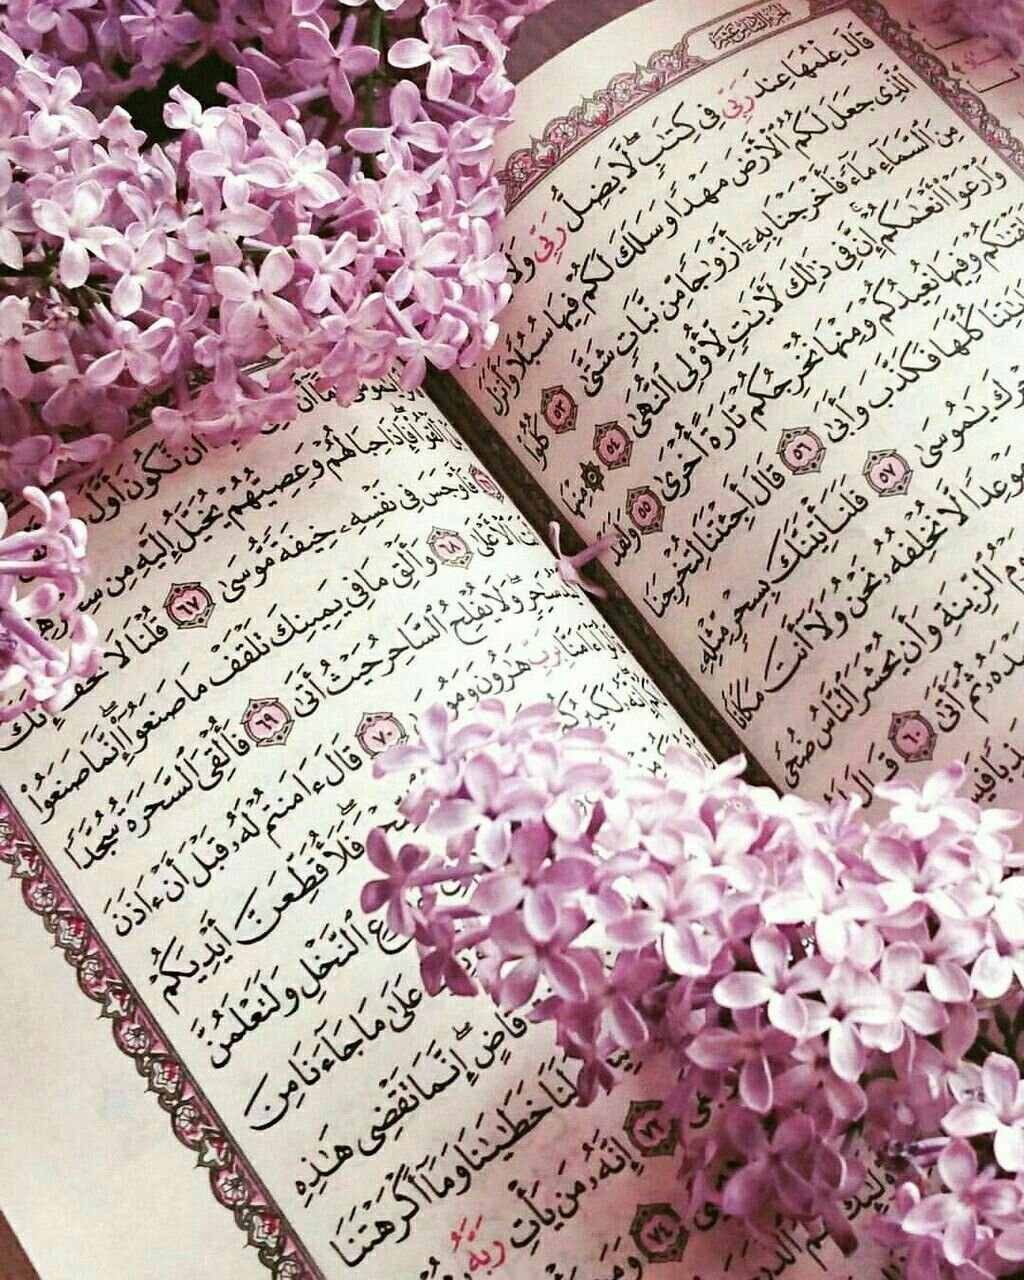 الجزء السادس عشر
قَالَ عِلْمُهَا عِندَ رَبِّى فِى كِتَٰبٍ ۖ لَّا يَضِلُّ رَبِّى وَلَا
ٱلَّذِى جَعَلَ لَكُمُ ٱلْأَرْضَ مَهْدًا وَسَلَكَ لَكُمْ فِيهَا سُبُلًا وَأَنزَلَ
مِنَ ٱلسَّمَآءِ مَآءً فَأَخْرَجْنَا بِهِۦٓ أَزْوَٰجًا مِّن نَّبَاتٍ شَتَّىٰ ٥٣ كُلُوا۟
وَٱرْعَوْا۟ أَنْعَٰمَكُمْ ۗ إِنَّ فِى ذَٰلِكَ لَءَايَٰتٍ لِّأُو۟لِى ٱلنُّهَىٰ ٥٤ مِنْهَا
وَفِيهَا نُعِيدُكُمْ وَمِنْهَا نُخْرِجُكُمْ تَارَةً أُخْرَىٰ ٥٥ وَلَقَدْ
كُلَّهَا فَكَذَّبَ وَأَبَىٰ ٥٦ قَالَ أَجِئْتَنَا لِتُخْرِجَنَا
يَٰمُوسَىٰ ٥٧ فَلَنَأْتِيَنَّكَ بِسِحْرٍ مِّثْلِهِۦ
مَوْعِدًا لَّا نُخْلِفُهُۥ نَحْنُ وَلَآ أَنتَ مَكَانًا
ٱلزِّينَةِ وَأَن يُحْشَرَ ٱلنَّاسُ ضُحًى
ثُمَّ أَتَىٰ ٦٠ قَالَ
أَن نَّكُونَ أَوَّلَ
فَإِذَا حِبَالُهُمْ وَعِصِيُّهُمْ يُخَيَّلُ إِلَيْهِ مِن
فَأَوْجَسَ فِى نَفْسِهِۦ خِيفَةً مُّوسَىٰ ٦٧ قُلْنَا لَا تَخَفْ إِنَّكَ
ٱلْأَعْلَىٰ ٦٨ وَأَلْقِ مَا فِى يَمِينِكَ تَلْقَفْ مَا صَنَعُوٓا۟ ۖ إِنَّمَا صَنَعُوا۟
سَٰحِرٍ ۖ وَلَا يُفْلِحُ ٱلسَّاحِرُ حَيْثُ أَتَىٰ ٦٩ فَأُلْقِىَ ٱلسَّحَرَةُ سُجَّدًا
ءَامَنَّا بِرَبِّ هَٰرُونَ ٧٠ قَالَ ءَامَنتُمْ لَهُۥ قَبْلَ أَنْ ءَاذَنَ
إِنَّهُۥ لَكَبِيرُكُمُ ۖ فَلَأُقَطِّعَنَّ أَيْدِيَكُمْ
ٱلنَّخْلِ وَلَتَعْلَمُنَّ
عَلَىٰ مَا جَآءَنَا مِنَ
قَاضٍ ۖ إِنَّمَا تَقْضِى هَٰذِهِ
٧٢ لَنَا خَطَٰيَٰنَا وَمَآ أَكْرَهْتَنَا
إِنَّهُۥ مَن يَأْتِ رَبَّهُۥ
٧٤ وَمَن